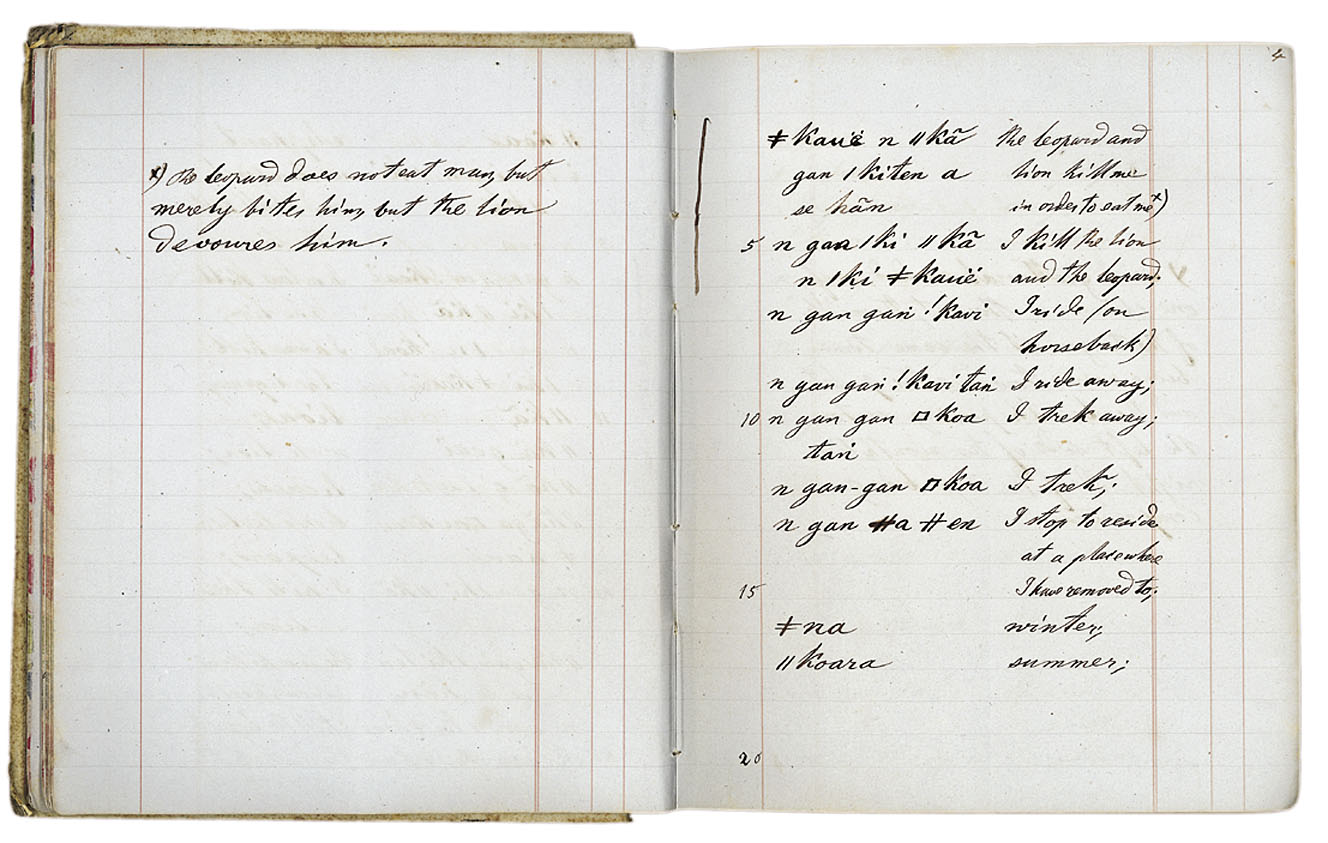 x) the leopard does not eat man, but
merely bites him, but the lion
devoures him.
4
ǂkauë n ǁkã the leopard and
gan ǀkiten a lion kill me
se hãn in order to eat me x)
5 n gan ǀki ǁkã I kill the lion
n ǀki ǂkauë and the leopard;
n gan gan ǃkavi I ride (on
horseback)
n gan gan ǃkavi tan I ride away;
10 n gan gan □koa I trek away;
tan
n gan-gan □koa I trek;
n gan ⧺a ⧺en I stop to reside
at a place where
15 I have removed to;
ǂna winter;
ǁkoara summer;
20